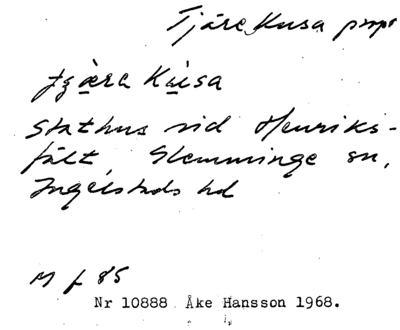 Tjäre Kusa prop
tjæra Kúsa
Stathus vid Henriks-
fält, Glemminge sn,
Ingelstads hd
M f 85
Nr 10888 Åke Hansson 1968.